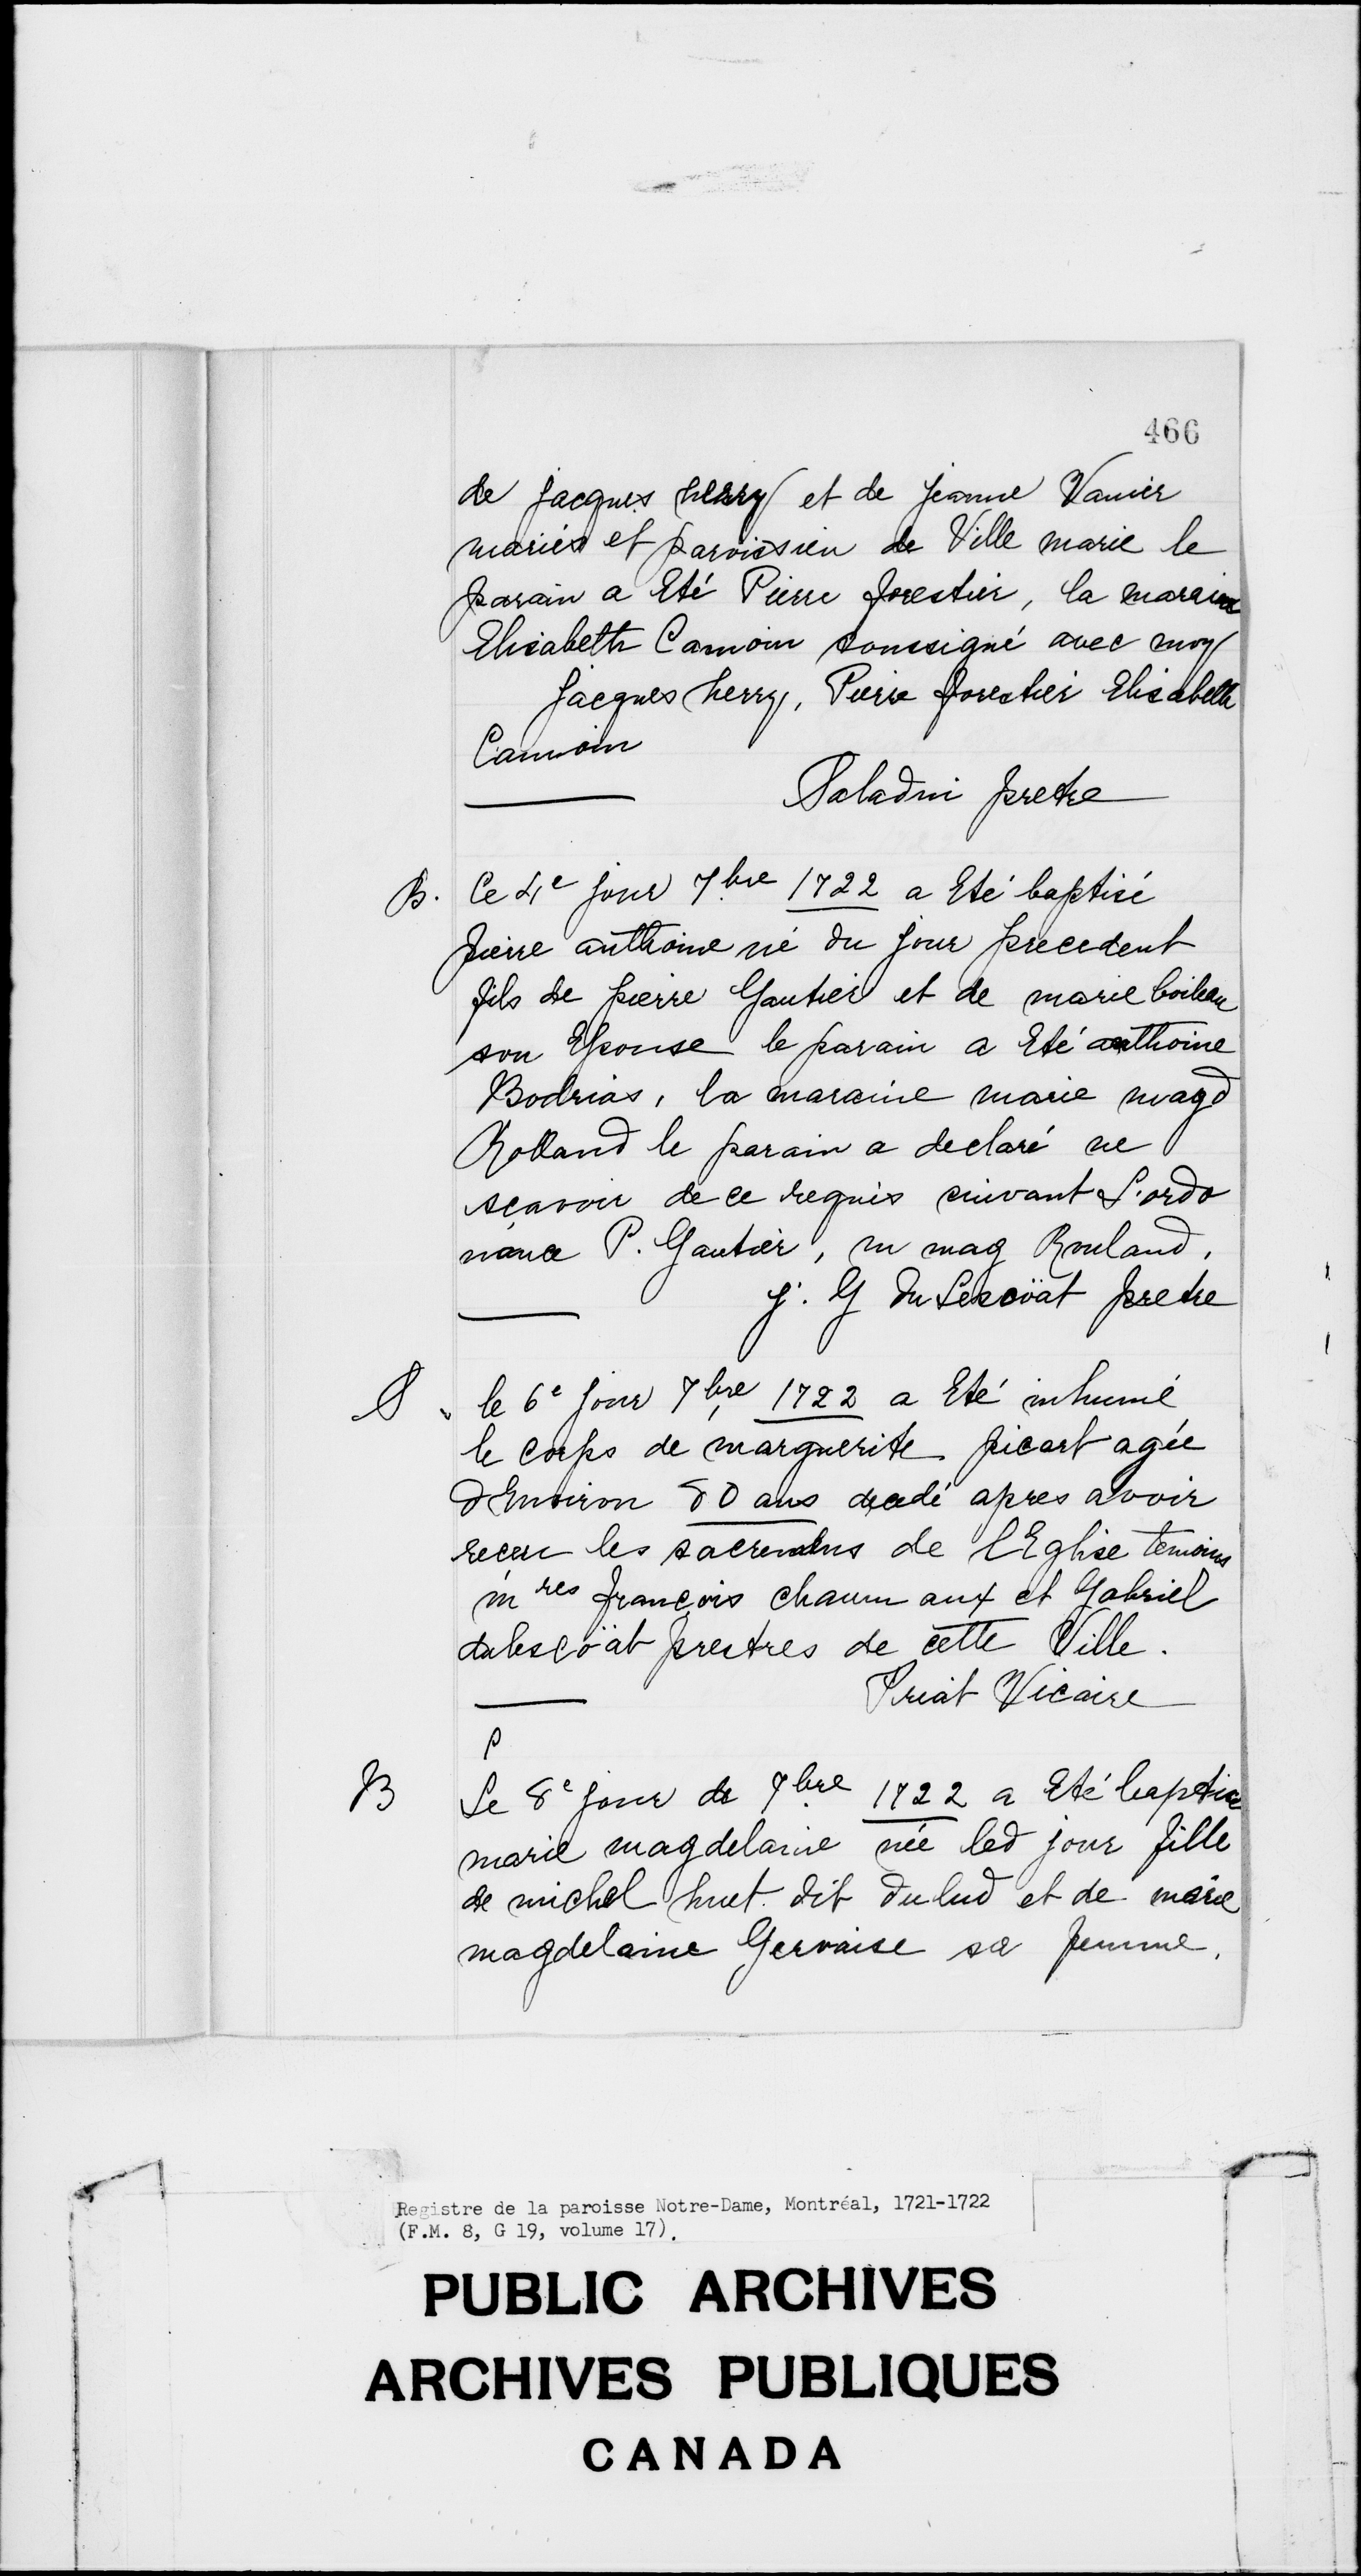 466
de jacques herry et de jeanne Vanier
mariés et paroissien de Ville marie le
parain a Eté Pierre forestier, la maraine
Elisabeth Camoin soussigné avec moy
jacques herry, Pierre forestier Elisabeth
Camoin
Saladin pretre
B. Ce 4e jour 7.bre 1722 a Eté baptisé
pierre anthoine né du jour precedent
fils de pierre Gautier et de marie boileau
son Epouse le parain a Eté anthoine
Bodrias, la maraine marie magd
Rolland le parain a declaré ne
sçavoir de ce requis suivant L'ordo
nance P. Gautier, m mag Rouland,
j. G du Lescöat pretre
S. le 6e jour 7bre 1722 a Eté inhumé
le corps de marguerite picart agée
d'Environ 80 ans decedé apres avoir
receu les sacremens de l'Eglise temoins
mres françois chaumaux et Gabriel
dulescöat prestres de cette Ville.
Priat Vicaire
p
B Le 8e jour de 7bre 1722 a Eté baptisé
marie magdelaine née led jour fille
de michel huet dit dulud et de marie
magdelaine Gervaise sa femme,
Registre de la paroisse Notre-Dame, Montréal, 1721-1722
(F.M. 8, G 19, volume 17).
PUBLIC ARCHIVES
ARCHIVES PUBLIQUES
CANADA